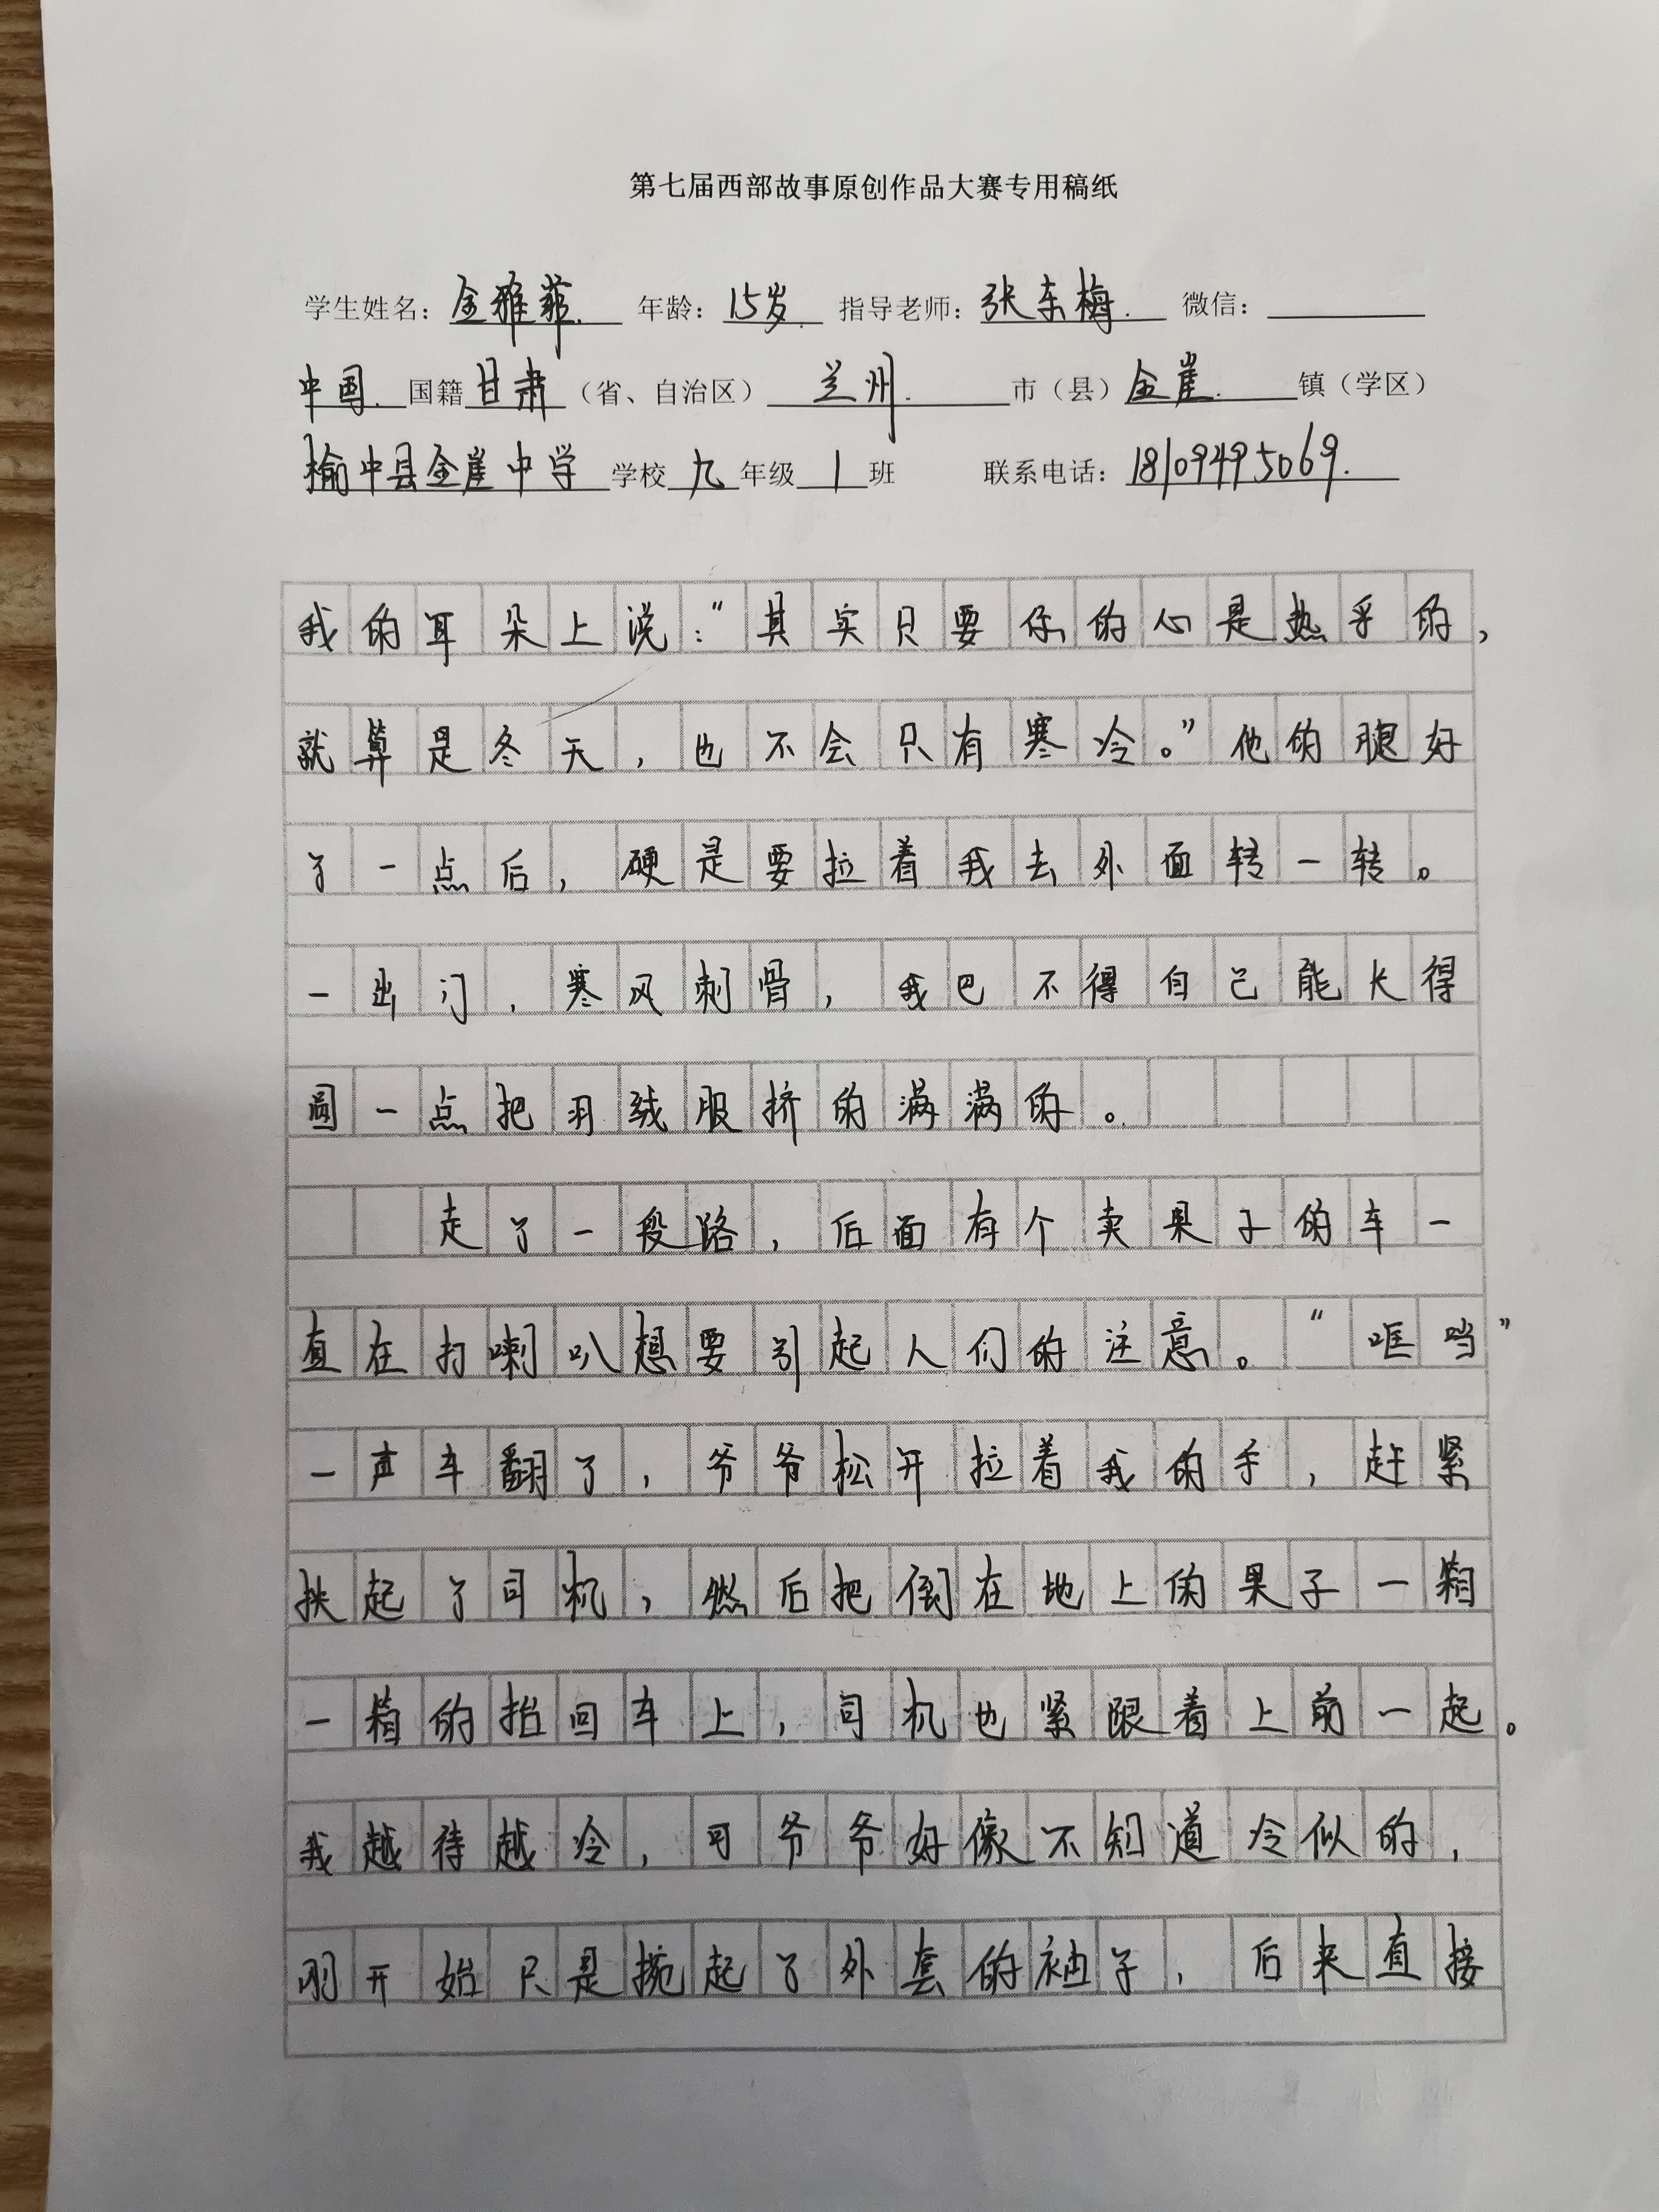 第七届西部故事原创作品大赛专用稿纸
学生姓名：金雅菲. 年龄：15岁. 指导老师：张东梅. 微信：
中国. 国籍甘肃（省、自治区）兰州. 市（县）金崖. 镇（学区）
榆中县金崖中学学校九年级1班 联系电话：18109495069.
我的耳朵上说：“其实只要你的心是热乎的，
就算是冬天，也不会只有寒冷。”他的腿好
了一点后，硬是要拉着我去外面转一转。
一出门，寒风刺骨，我巴不得自己能长得
圆一点把羽绒服挤的满满的。
走了一段路，后面有个卖果子的车一
直在打喇叭想要引起人们的注意。“哐当”
一声车翻了，爷爷松开拉着我的手，赶紧
扶起了司机，然后把倒在地上的果子一箱
一箱的抬回车上，司机也紧跟着上前一起。
我越待越冷，可爷爷好像不知道冷似的，
刚开始只是挽起了外套的袖子，后来直接